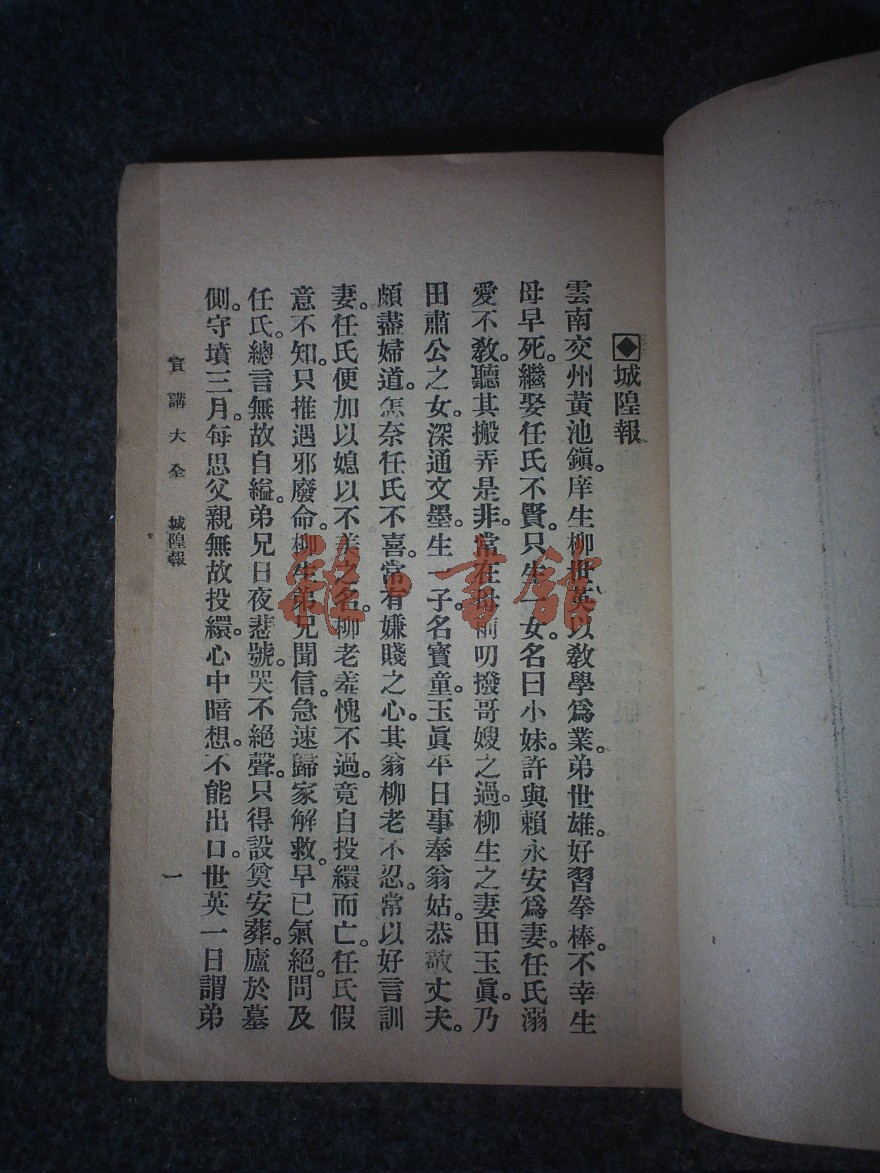 城隍報
雲南交州黃池鎭。庠生柳世英、以教學爲業。弟世雄。好習拳棒。不幸生
母早死。繼娶任氏不賢。只生一女。名曰小妹。許與賴永安爲妻。任氏溺
愛不教。聽其搬弄是非。常在母前叨撥哥嫂之過。柳生之妻田玉眞。乃
田肅公之女。深通文墨。生一子。名寶童。玉眞平日事奉翁姑。恭敬丈夫。
頗盡婦道。怎奈任氏不喜。常有嫌賤之心。其翁柳老不忍。常以好言訓
妻。任氏便加以媳以不美之名。柳老羞愧不過。竟自投繯而亡。任氏假
意不知。只推遇邪廢命。柳生弟兄聞信。急速歸家解救。早已氣絕。問及
任氏。總言無故自縊。弟兄日夜悲號。哭不絕聲。只得設奠安葬。廬於墓
側。守墳三月。每思父親無故投繯。心中暗想。不能出口。世英一日謂弟
宣講大全 城隍報 一